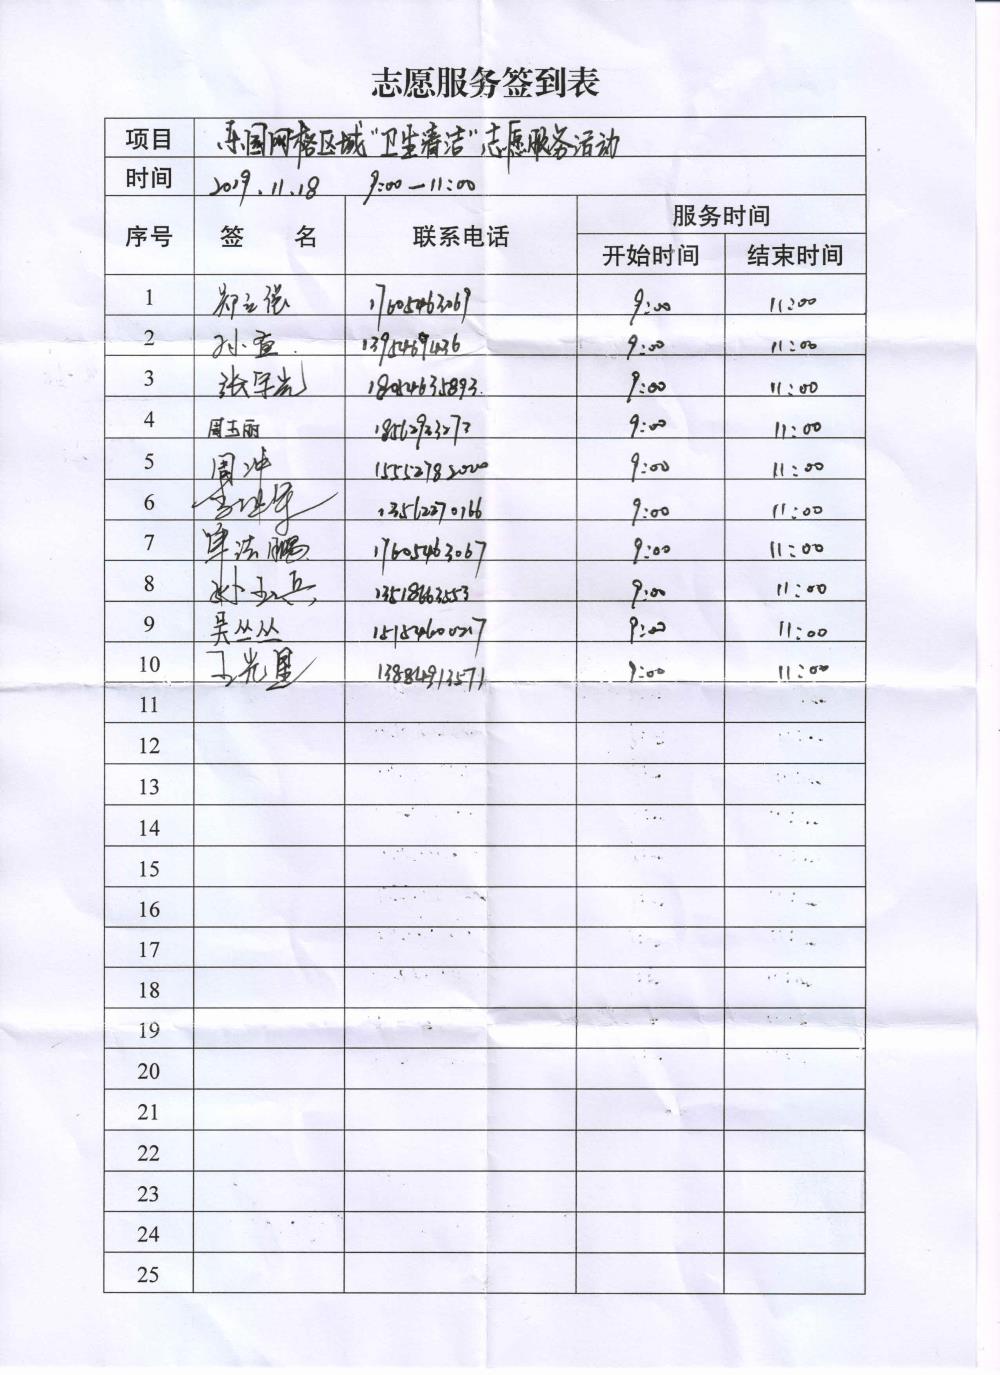 志愿服务签到表
项目 乐园网格区域"卫生清洁"志愿服务活动
时间 2019.11.18 9:00—11:00
序号 签 名 联系电话 服务时间
开始时间 结束时间
1 郑立强 17605463069 9:00 11:00
2 孙 9:00 11:00
3 张宇 18054635893. 9:00 11:00
4 周玉丽 18562923273 9:00 11:00
5 周冲 15552782000 9:00 11:00
6 13562270166 9:00 11:00
7 单法鹏 17605463067 9:00 11:00
8 孙玉兵 13518663553 9:00 11:00
9 吴丛丛 15154600217 9:00 11:00
10 王光星 13884913571 9:00 11:00
11
12
13
14
15
16
17
18
19
20
21
22
23
24
25